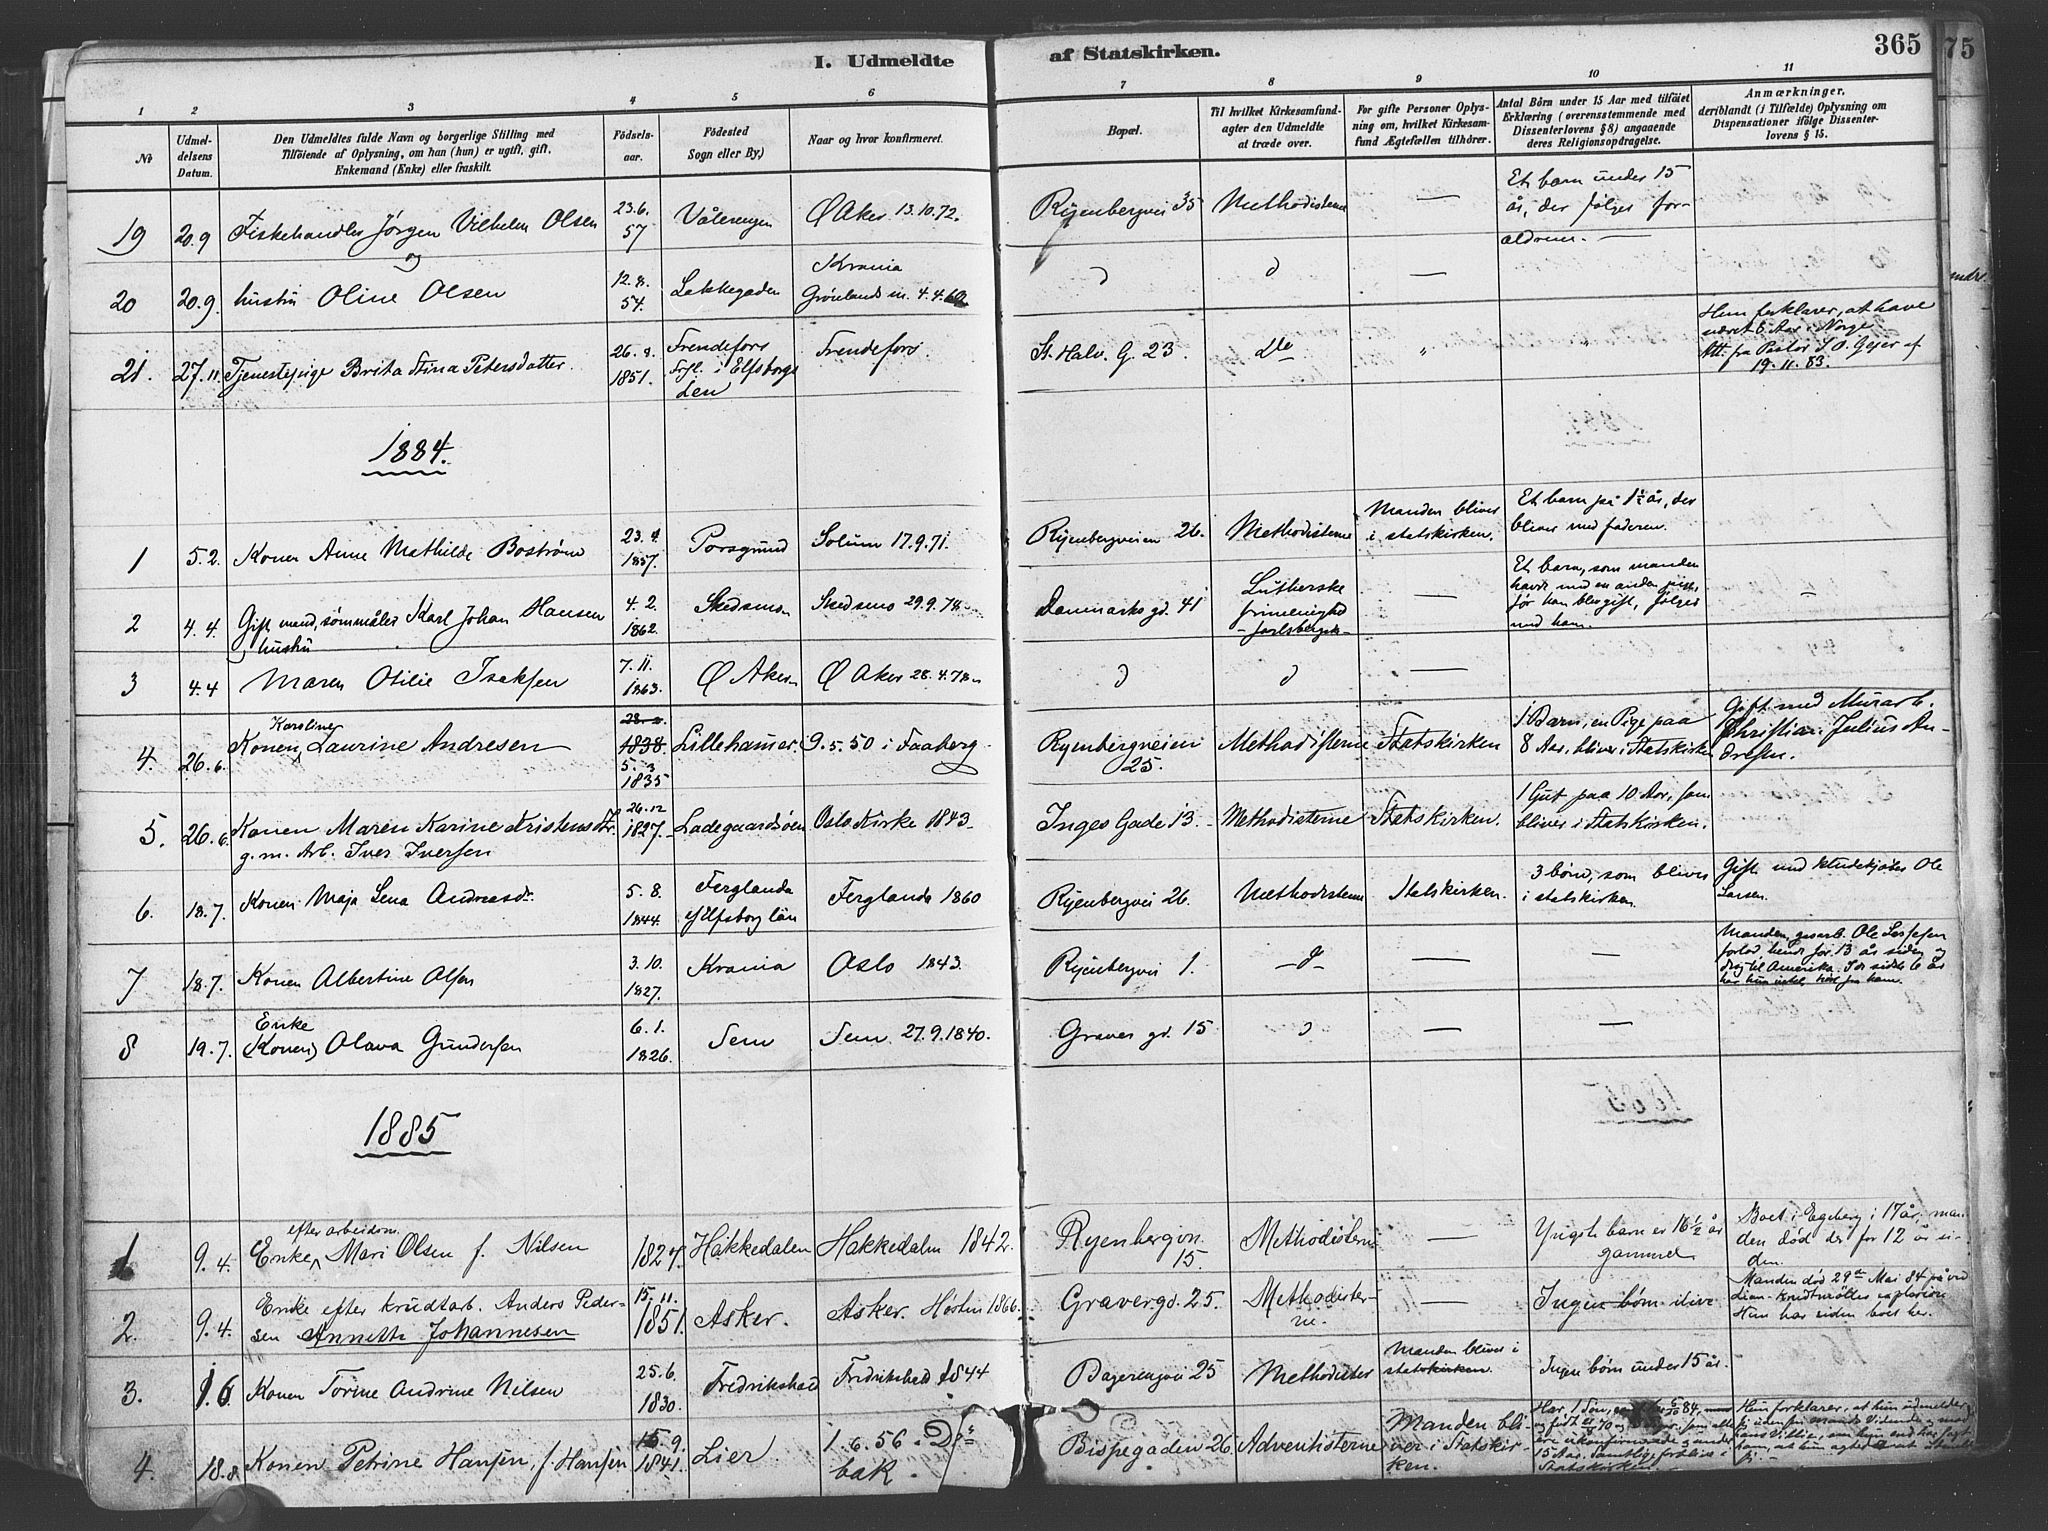 I. Udmeldte af Statskirken. 365
75
1 2 3 4 5 6 7 8 9 10 11
No
Udmel-
delsens
Datum.
Den Udmeldtes fulde Navn og borgerlige Stilling med
Tilføiende af Oplysning, om han (hun) er ugift, gift,
Enkemand (Enke) eller fraskilt.
Fødsels-
aar.
Fødested
Sogn eller By.)
Naar og hvor konfirmeret.
Bopæl.
Til hvilket Kirkesamfund-
agter den Udmeldte
at træde over.
For gifte Personer Oplys-
ning om, hvilket Kirkesam-
fund Ægtefællen tilhører.
Antal Børn under 15 Aar med tilføiet
Erklæring (overensstemmende med
Dissenterlovens § 8) angaaende
deres Religionsopdragelse.
Anmærkninger,
deriblandt (i Tilfælde) Oplysning om
Dispensationer ifølge Dissenter-
lovens § 15.
19 20.9 Fiskehandler Jørgen Vilhelm Olsen
og
23.6.
57
Vålerengen
Ø Aker 13.10.72.
Ryenbergvei 35
Methodisterne
—
Et barn under 15
år, der følger for-
ældrene. —
20 20.9. hustru Oline Olsen
12.8.
54.
Lakkegaden
Krania
Grønlands m. 4.4.
—
21. 27.11 Tjenestepige Brita Stina Petersdatter
26.8.
1851.
Frendefors
i Elfsborgs
Len
Frendefors.
St. Halv. G. 23.
do
"
"
Hun forklarer, at have
været 6 Aar i Norge
Att. fra Pastor S. O. Gejer af
19.11.83.
1884.
1 5.2. Konen Anne Mathilde Bostrøm
1857.
Porsgrund
Solum 17.9.71.
Ryenbergveien 26.
Methodisterne
Manden bliver
i statskirken.
Et barn på 1½ år, der
bliver med faderen.
2 4.4. Gift mand, sømmåler Karl Johan Hansen
hustru
4.2.
1862.
Skedsmo
Skedsmo 29.9.78
Danmarks gd. 41
Lutherske
frimenighed
—
Et barn, som manden
havde med en anden pige,
før han blev gift, følger
med ham.
"
3 4.4 Maren Otilie Isaksen
7.11.
1863.
Ø Aker
Ø Aker 28.4.78
—
4. 26.6. Konen Karoline Laurine Andresen
1838.
5.3
1835
Lillehamer.
9.5.50 i Faaberg
Ryenbergveien
25.
Methodisterne
Statskirken
1 Barn, en Pige paa
8 Aar, bliver i Statskirken
Gift med Murarb.
Christian Julius An-
dresen.
5. 26.6. Konen Maren Karine Kristensdtr.
g.m. Arb. Iver Iversen
26.12
1827.
Ladegaardsøen
Oslo Kirke 1843
Inges Gade 13.
Methodisterne
Statskirken.
1 Gut paa 10 Aar, som
bliver i Statskirken.
6. 18.7. Konen Maja Lena Andreasdr.
5.8.
1844.
Ferglanda
Elfsborg län
Ferglanda 1860
Ryenbergvei 26.
Methodisterne
Statskirken.
3 børn, som bliver
i statskirken.
Gift med kludekjøber Ole
Larsen.
7 18.7. Konen Albertine Olsen
3.10.
1827.
Krania
Oslo 1843.
Ryenbergvei 1.
—
—
Manden, Ole
forlod hende for 13 år siden og
drog til Amerika. I de sidste 6 år
har hun intet hørt fra ham.
8 19.7. Enke
(Konen) Olava Gundersen
6.1.
1826.
Sem
Sem 27.9.1840.
Graver gd. 15
—
—
1885
1 9.4. Enke efter arbeidsm. Mari Olsen f. Nilsen
1827.
Hakkedalen
Hakkedalen 1842.
Ryenbergvn.
15.
Methodisterne
—
Yngste barn er 16½ år
gammel
Boet i Egeberg i 17 år, man-
den død der for 12 år si-
den.
2. 9.4. Enke efter krudtarb. Anders Peder-
sen Annette Johannesen
15.11.
1851.
Asker.
Asker. Høsten 1866.
Gravergd. 25.
Methodister-
ne.
—
Ingen børn ilive
Manden død 29de Mai 84 på ved
Lian krudtmølles explosion
Hun har siden boet her.
3. 1.6 Konen Torine Andrine Nilsen
25.6.
1830.
Fredrikshald
Fredrikshald 1844
Dagerengvei 25
Methodister
Manden bliver i
statskirken.
Ingen børn under 15 år.
4. 18.8 Konen Petrine Hansen, f. Hansen
15.9.
1841.
Lier
1.6.56.
bak
Bispegaden 26.
Adventisterne
Manden bli-
ver i Statskir-
ken.
Har 1 Søn,
15 Aar. Samtlige forblive i
Statskirken.
Hun forklarer, at hun udmelder